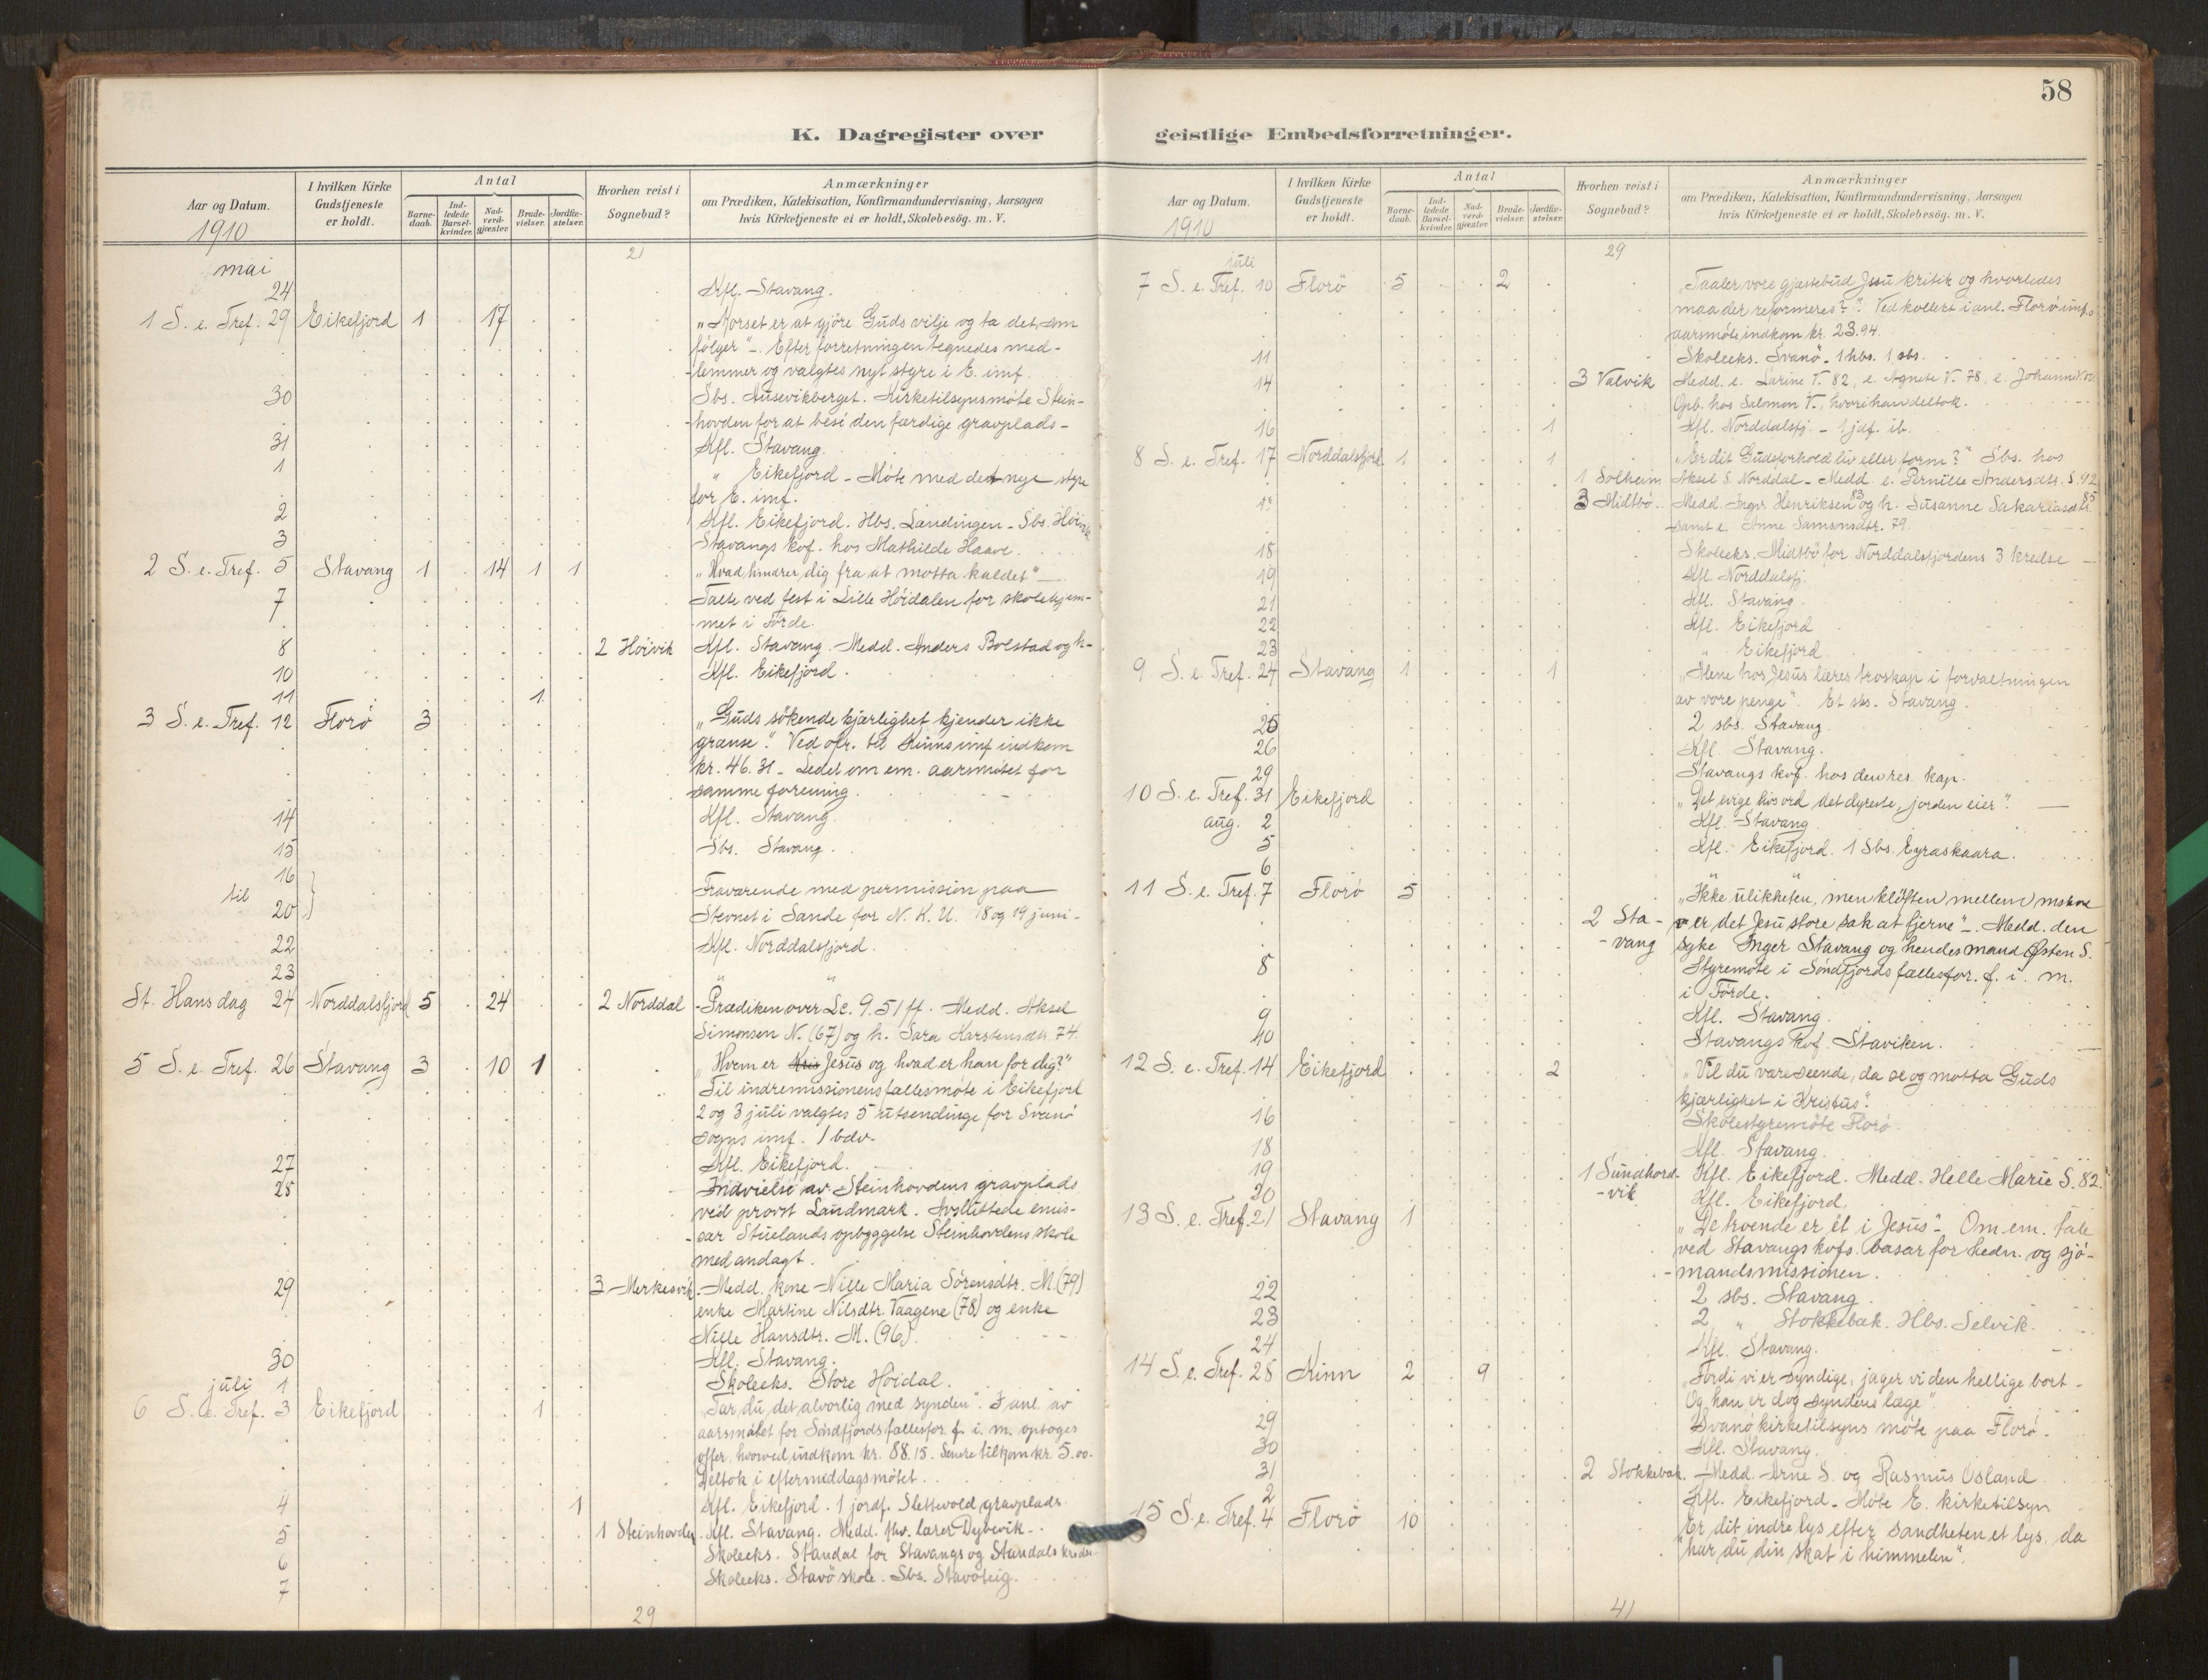 58
K. Dagregister over
Aar og Datum.
1910
I hvilken Kirke Gudstjeneste er holdt.
Antal
Barne-daab.
Ind-ledede Barsel-kvinder.
Nad-verd-gjæster.
Brude-vielser.
Jordfæ-stelser.
Hvorhen reist i Sognebud?
Anmærkninger
om Prædiken, Katekisation, Konfirmandundervisning, Aarsagen
hvis Kirketjeneste ei er holdt, Skolebesög. m. V.
21
mai
24 Kfl. Stavang.
1 S. e. Tref. 29 Eikefjord 1 17 „Korset er at gjöre Guds vilje og ta det, som
följer" –. Efter forretningen tegnedes med-
-lemmer og valgtes nyt styre i E. imf.
30 Sbs. Ausevikberget. Kirketilsynsmöte Stein-
-hovden for at bese den færdige gravplads –
31 Kfl. Stavang.
1 " Eikefjord – Möte med det nye styre
for E. imf.
2 Kfl. Eikefjord. Hbs. Landingen – Sbs.
3 Stavangs kvf. hos Mathilde Haave.
2 S. e. Tref. 5 Stavang 1 14 1 1 „Hvad hindrer dig fra at motta kaldet" –
7 Talte ved fest i Lille Höidalen for skolehjem-
-met i Förde.
8 2 Höivik Kfl. Stavang. Medd. Anders Bolstad og h-
10 Kfl. Eikefjord.
11 1
3 S. e. Tref. 12 Florö 3 „Guds sökende kjærlighet kjender ikke
grænse." Ved ofr. til Kinns imf indkom
kr. 46.31 – Ledet om em. aarsmötet for
samme forening.
14 Kfl. Stavang
15 Sbs. Stavang.
16
til
20 Fraværende med permission paa
Stevnet i Sande for N. K. U. 18 og 19 juni –
22 Kfl. Norddalsfjord.
23 " "
St. Hansdag 24 Norddalsfjord 5 24 2 Norddal – Prædiken over Lc. 9. 51 ff. – Medd. Aksel
Simonsen N. (67) og h. Sara Karstensdtr. 74
5 S. e. Tref. 26 Stavang 3 10 1 „Hvem er Kris Jesus og hvad er han for dig?"
Til indremissionens fællesmöte i Eikefjord
2 og 3 juli valgtes 5 utsendinge for Svanö
sogns imf. 1 bdv.
27 Kfl. Eikefjord.
28 Indvielse av Steinhovdens gravplads
ved provst Landmark. Avsluttede emis-
-sær Stuelands opbyggelse Steinhovdens skole
med andagt.
29 3 Merkesvik – Medd. kone Nille Maria Sörensdtr. M. (79)
enke Martine Nilsdtr. Vaagene (78) og enke
Nille Hansdtr. M. (96).
30 Kfl. Stavang.
juli 1 Skoleeks. Store Höidal.
6 S. e. Tref. 3 Eikefjord 1 „Tar du det alvorlig med synden". I anl. av
aarsmötet for Söndfjords fællesfor. f. i. m. optoges
offer, hvorved indkom kr. 88.15. Senere tilkom kr. 5.00.
Deltok i eftermiddagsmötet.
4 1 Kfl. Eikefjord. 1 jordf. Slettevold gravplads
5 1 Steinhovden – Kfl. Stavang. Medd. fhv. lærer Dybevik –
6 Skoleeks. Standal for Stavangs og Standals kredse
7 Skoleeks. Stavö skole. Sbs. Stavöteig.
29
geistlige Embedsforretninger.
Aar og Datum.
1910
I hvilken Kirke Gudstjeneste er holdt.
Antal
Barne-daab.
Ind-ledede Barsel-kvinder.
Nad-verd-gjæster.
Brude-vielser.
Jordfæ-stelser.
Hvorhen reist i Sognebud?
Anmærkninger
om Prædiken, Katekisation, Konfirmandundervisning, Aarsagen
hvis Kirketjeneste ei er holdt, Skolebesög. m. V.
29
juli
7 S. e. Tref. 10 Florö 5 2 „Taaler vore gjæstebud Jesu kritik og hvorledes
maa der reformeres?": Ved kollekt i anl. Florö imf.s
aarsmöte indkom kr. 23.94.
11 Skoleeks. Svanö – 1 hbs. 1 sbs.
14 3 Valvik Medd. e. Larine V. 82, e. Agnete V. 78, e. Johanne
Opb. hos Salomon V., hvori han deltok.
16 1 Kfl. Norddalsfj. – 1 jdf. ib.
8 S. e. Tref. 17 Norddalsfjord 1 1 „Er dit Gudsforhold liv eller form?" Sbs. hos
1 Solheim Aksel S. Norddal – Medd. e. Pernille Andersdtr. S. 92
3 Midtbö – Medd. Ingv. Henriksen 83 og h. Susanne Sakariasdtr. 85
samt e. Anne Samsonsdtr. 79.
18 Skoleeks. Midtbö for Norddalsfjordens 3 kredse –
19 Kfl. Norddalsfj.
21 Kfl. Stavang.
22 Kfl. Eikefjord
23 " Eikefjord
9 S. e. Tref. 24 Stavang 1 1 „Alene hos Jesus læres troskap i forvaltningen
av vore penge". Et sbs. Stavang.
25 2 sbs. Stavang
26 Kfl. Stavang.
29 Stavangs kvf. hos den res. kap.
10 S. e. Tref. 31 Eikefjord „Det evige livs ord det dyreste, jorden eier". –
aug. 2 Kfl. Stavang
5 Kfl. Eikefjord. 1 Sbs. Eyraskaara.
6
11 S. e. Tref. 7 Florö 5 „Ikke ulikheten, men klöften mellem mskene
2 Sta-
-vang er det Jesu store sak at fjerne" –. Medd. den
syke Inger Stavang og hendes mand Östen S.
8 Styremöte i Söndfjords fællesfor. f. i. m.
i Förde.
9 Kfl. Stavang.
10 Stavangs kvf. Staviken.
12 S. e. Tref. 14 Eikefjord 2 „Vil du være seende, da se og motta Guds
kjærlighet i Kristus".
16 Skolestyremöte Florö.
18 Kfl. Stavang.
19 1 Sundhord-
-vik Kfl. Eikefjord. Medd. Helle Marie S. 82.
20 Kfl. Eikefjord.
13 S. e. Tref. 21 Stavang 1 „De troende er ét i Jesus" – Om em. tale
ved Stavangs kvfs. basar for hedn. og sjö-
-mandsmissionen.
22 2 sbs. Stavang
23 2 " Stokkebæk. Hbs. Selvik.
24 Kfl. Stavang.
14 S. e. Tref. 28 Kinn 2 9 „Fordi vi er syndige, jager vi den hellige bort –
Og han er dog syndens læge".
29 Svanö kirketilsyns möte paa Florö.
30 Kfl. Stavang.
31 2 Stokkebæk. – Medd. Arne S. og Rasmus Osland
2 Kfl. Eikefjord – Möte E. kirketilsyn
15 S. e. Tref. 4 Florö 10 „Er dit indre lys efter sandheten et lys, da
har du din skat i himmelen".
41